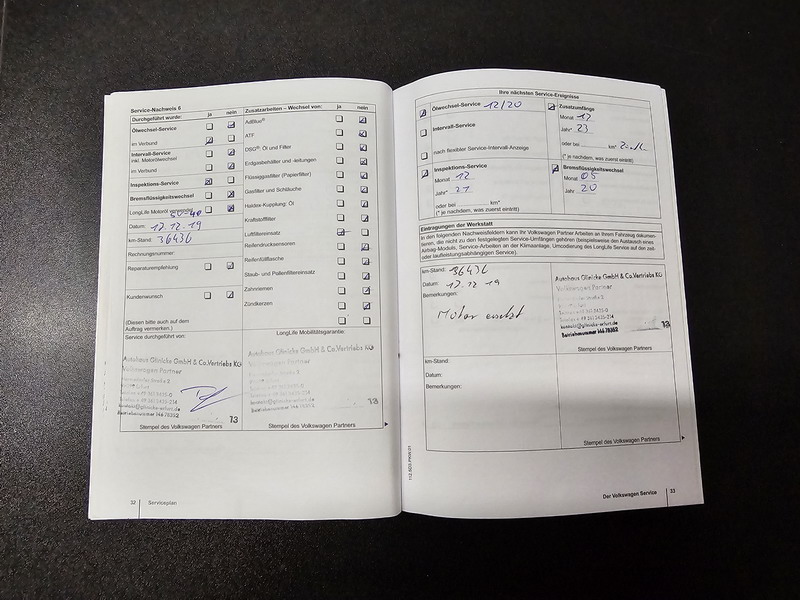 Service-Nachweis 6
Durchgeführt wurde: ja nein
Ölwechsel-Service
im Verbund
Intervall-Service
inkl. Motorölwechsel
im Verbund
Inspektions-Service
Bremsflüssigkeitswechsel
LongLife Motoröl verwendet
50-40
Datum: 17.12.19
km-Stand: 36436
Rechnungsnummer:
Reparaturempfehlung
Kundenwunsch
(Diesen bitte auch auf dem
Auftrag vermerken.)
Service durchgeführt von:
Autohaus Glinicke GmbH & Co.Vertriebs KG
Volkswagen Partner
kontakt@glinicke-erfurt.de
Betriebsnummer 146 78352
13
Stempel des Volkswagen Partners
Zusatzarbeiten – Wechsel von: ja nein
AdBlue®
ATF
DSG®: Öl und Filter
Erdgasbehälter und -leitungen
Flüssiggasfilter (Papierfilter)
Gasfilter und Schläuche
Haldex-Kupplung: Öl
Kraftstofffilter
Luftfiltereinsatz
Reifendrucksensoren
Reifenfüllflasche
Staub- und Pollenfiltereinsatz
Zahnriemen
Zündkerzen
LongLife Mobilitätsgarantie
Autohaus Glinicke GmbH & Co.Vertriebs KG
Volkswagen Partner
kontakt@glinicke-erfurt.de
Betriebsnummer 146 78352
13
Stempel des Volkswagen Partners
32 Serviceplan
Ihre nächsten Service-Ereignisse
Ölwechsel-Service 12/20
Intervall-Service
nach flexibler Service-Intervall-Anzeige
Inspektions-Service
Monat 12
Jahr* 21
oder bei km*
(* je nachdem, was zuerst eintritt)
Zusatzumfänge
Monat 12
Jahr* 23
oder bei km*
(* je nachdem, was zuerst eintritt)
Bremsflüssigkeitswechsel
Monat 05
Jahr 20
Eintragungen der Werkstatt
In den folgenden Nachweisfeldern kann Ihr Volkswagen Partner Arbeiten an Ihrem Fahrzeug dokumen-
tieren, die nicht zu den festgelegten Service-Umfängen gehören (beispielsweise den Austausch eines
Airbag-Moduls, Service-Arbeiten an der Klimaanlage, Umcodierung des LongLife Service auf den zeit-
oder laufleistungsabhängigen Service).
km-Stand: 36436
Datum: 17.12 19
Bemerkungen:
Motor ersetzt
Autohaus Glinicke GmbH & Co.Vertriebs KG
Volkswagen Partner
kontakt@glinicke-erfurt.de
Betriebsnummer 146 78352
13
Stempel des Volkswagen Partners
km-Stand:
Datum:
Bemerkungen:
Stempel des Volkswagen Partners
Der Volkswagen Service 33